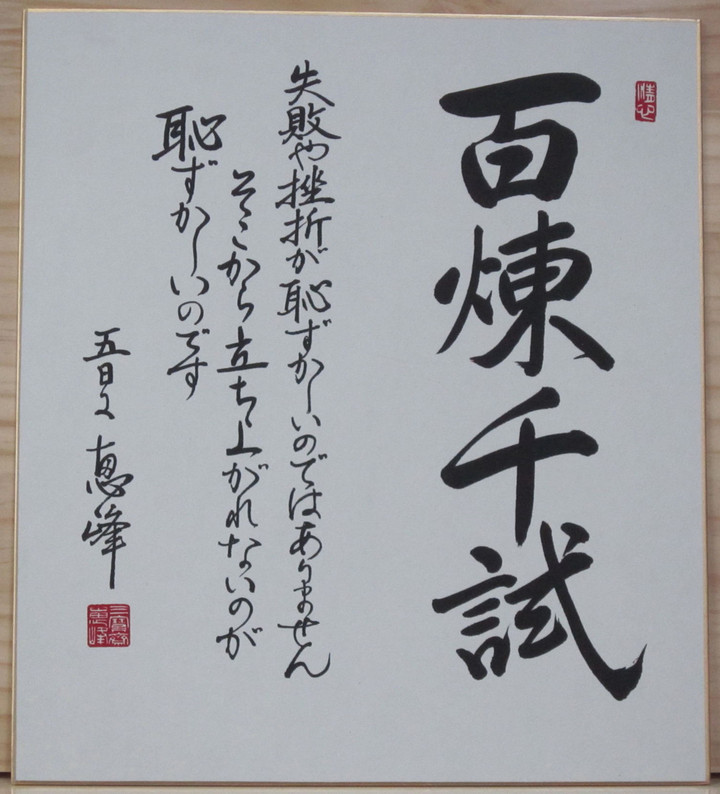 百煉千試
失敗や挫折が恥ずかしいのではありません
そこから立ち上がれないのが
恥ずかしいのです
恵峰